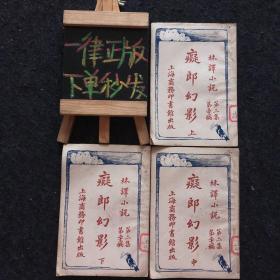 一律正版
下单秒发
林譯小説
第二集
第壹編
癡郎幻影
上
上海商務印書館出版
林譯小説
第二集
第壹編
癡郎幻影
下
上海商務印書館出版
林譯小説
第二集
第壹編
癡郎幻影
中
上海商務印書館出版